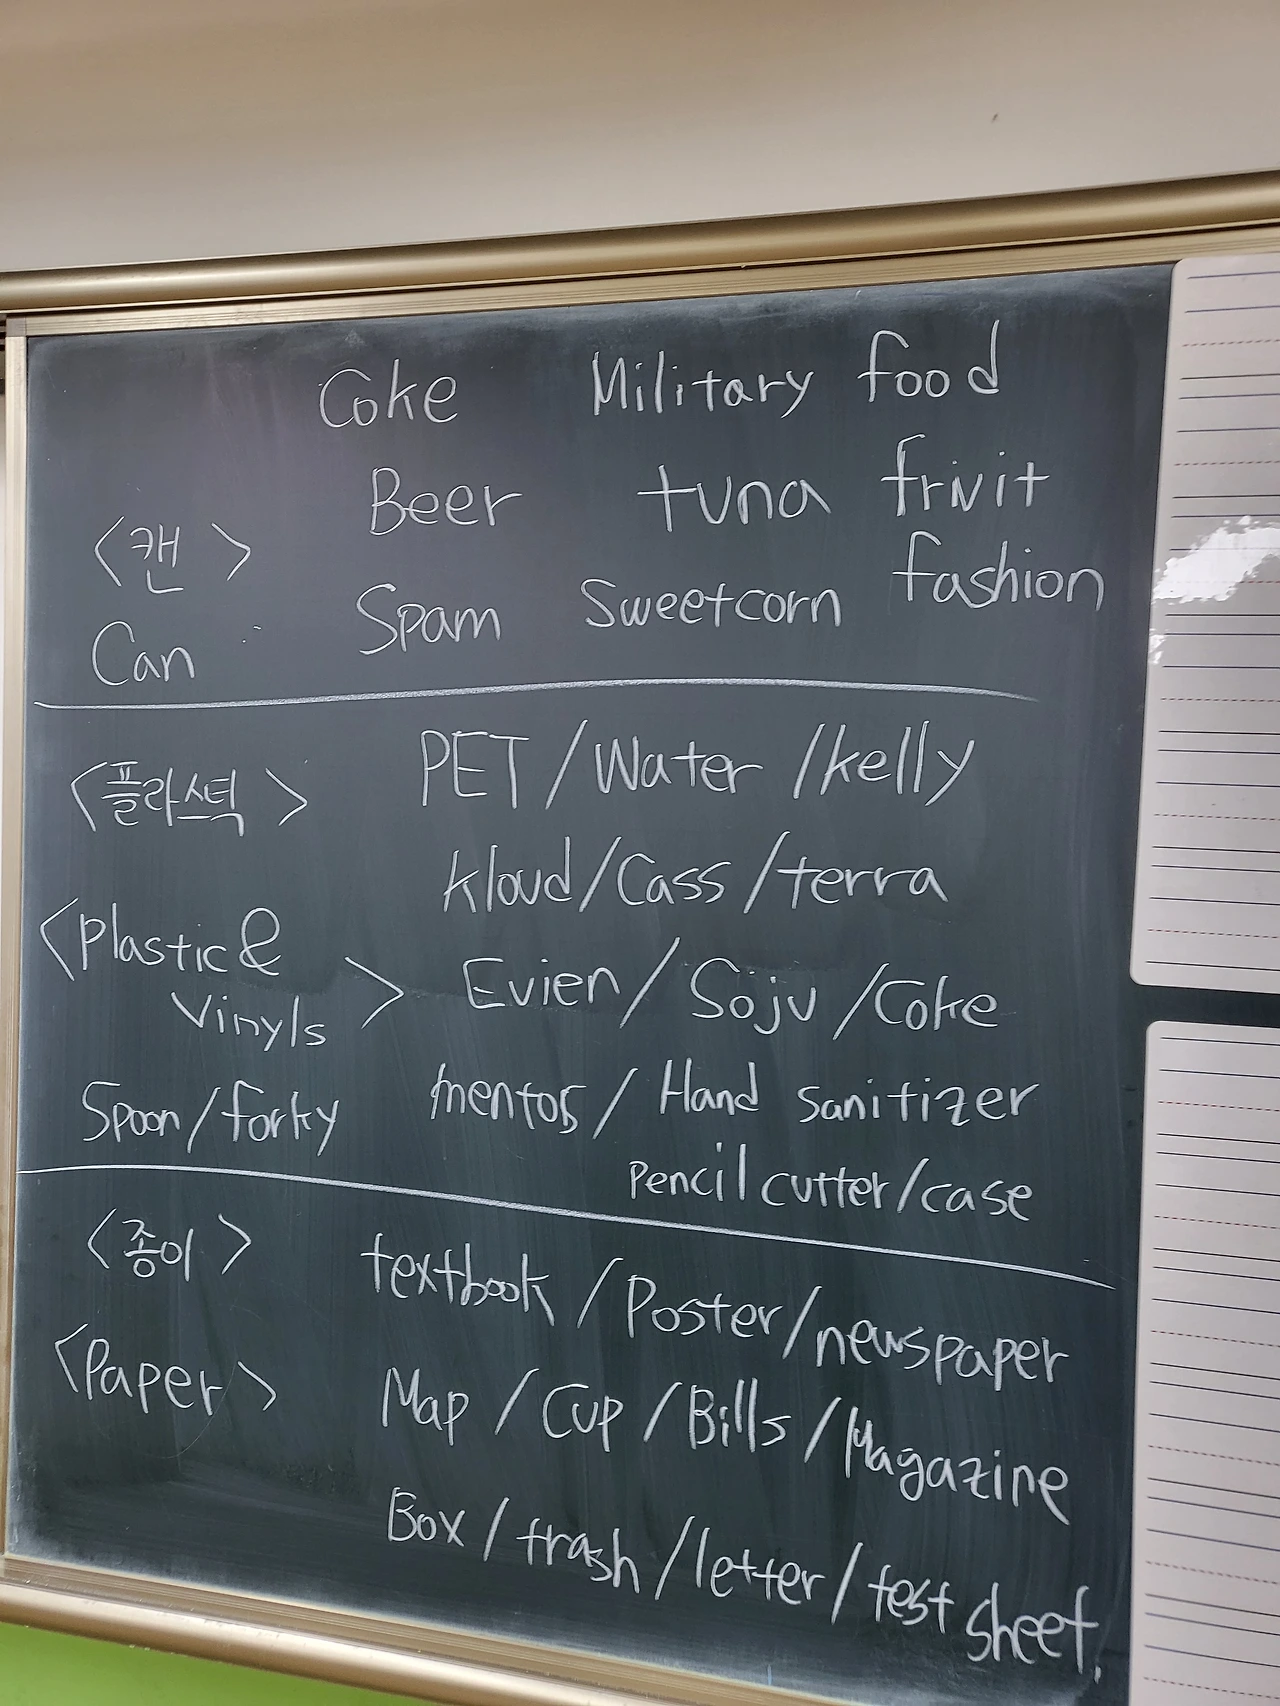 Coke Military food
Beer tuna frivit
<캔> fashion
Spam Sweetcorn
Can
PET / Water / kelly
<플라스틱>
kloud / Cass / terra
<Plastic &
Vinyls> Evien / Soju / Coke
Spoon / forky mentos / Hand sanitizer
Pencil cutter / case
<종이> textbook / Poster / newspaper
<Paper> Map / Cup / Bills / Magazine
Box / trash / letter / test sheet.